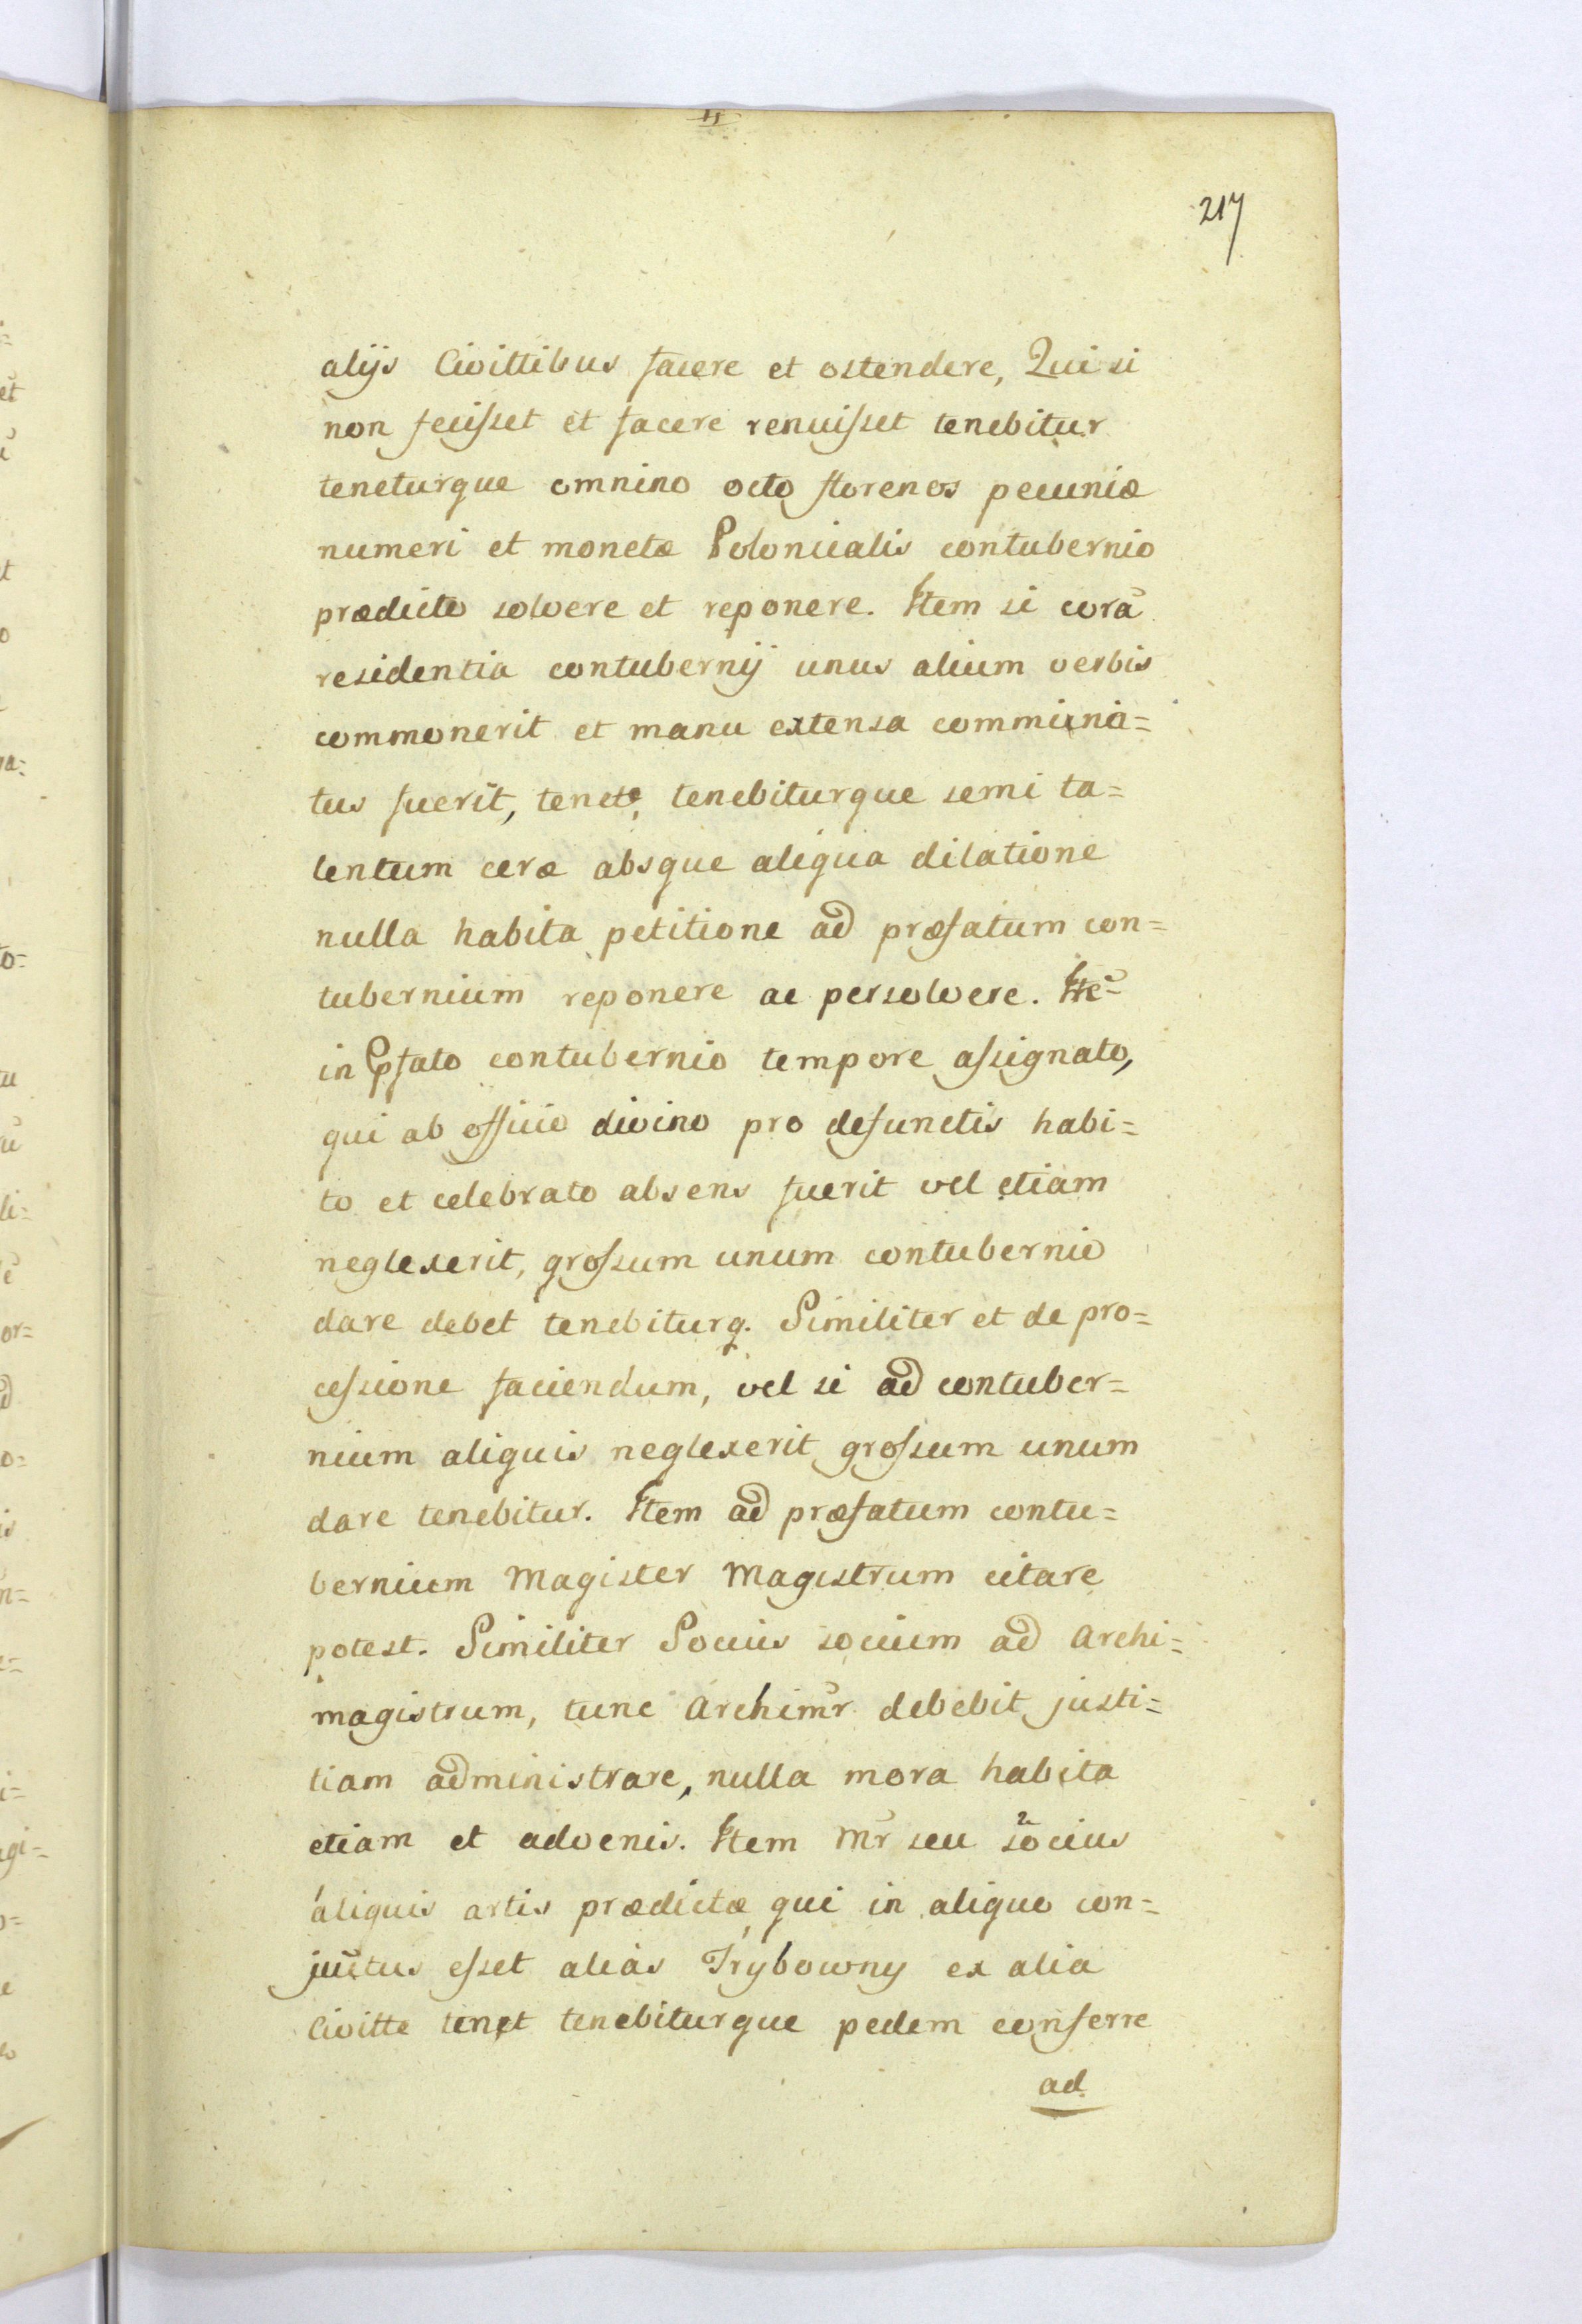 217
alijs Civittibus facere et ostendere, Qui si
non fecisset et facere renuisset tenebitur
teneturque omnino octo florenos pecuniæ
numeri et monetæ Polonicalis contubernio
prædicto solvere et reponere. Item si corã
residentia contubernij unus alium verbis
commonerit et manu extensa commina=
tus fuerit, tenet, tenebiturque semi ta=
lentum ceræ absque aliqua dilatione
nulla habita petitione ad præfatum con=
tubernium reponere ac persolvere. Itẽ
in Pfato contubernio tempore assignato,
qui ab officio divino pro defunctis habi=
to et celebrato absens fuerit vel etiam
neglexerit, grossum unum contubernio
dare debet tenebiturq. Similiter et de pro=
cessione faciendum, vel si ad contuber=
nium aliquis neglexerit grossum unum
dare tenebitur. Item ad præfatum contu=
bernium Magister Magistrum citare
potest. Similiter Socius socium ad Archi=
magistrum, tunc Archimr̃ debebit justi=
tiam administrare, nulla mora habita
etiam et advenis. Item Mr̃ seu socius
aliquis artis prædictæ qui in aliquo con=
jũctus esset aliàs Trybowny ex alia
Civitte tenet tenebiturque pedem conferre
ad